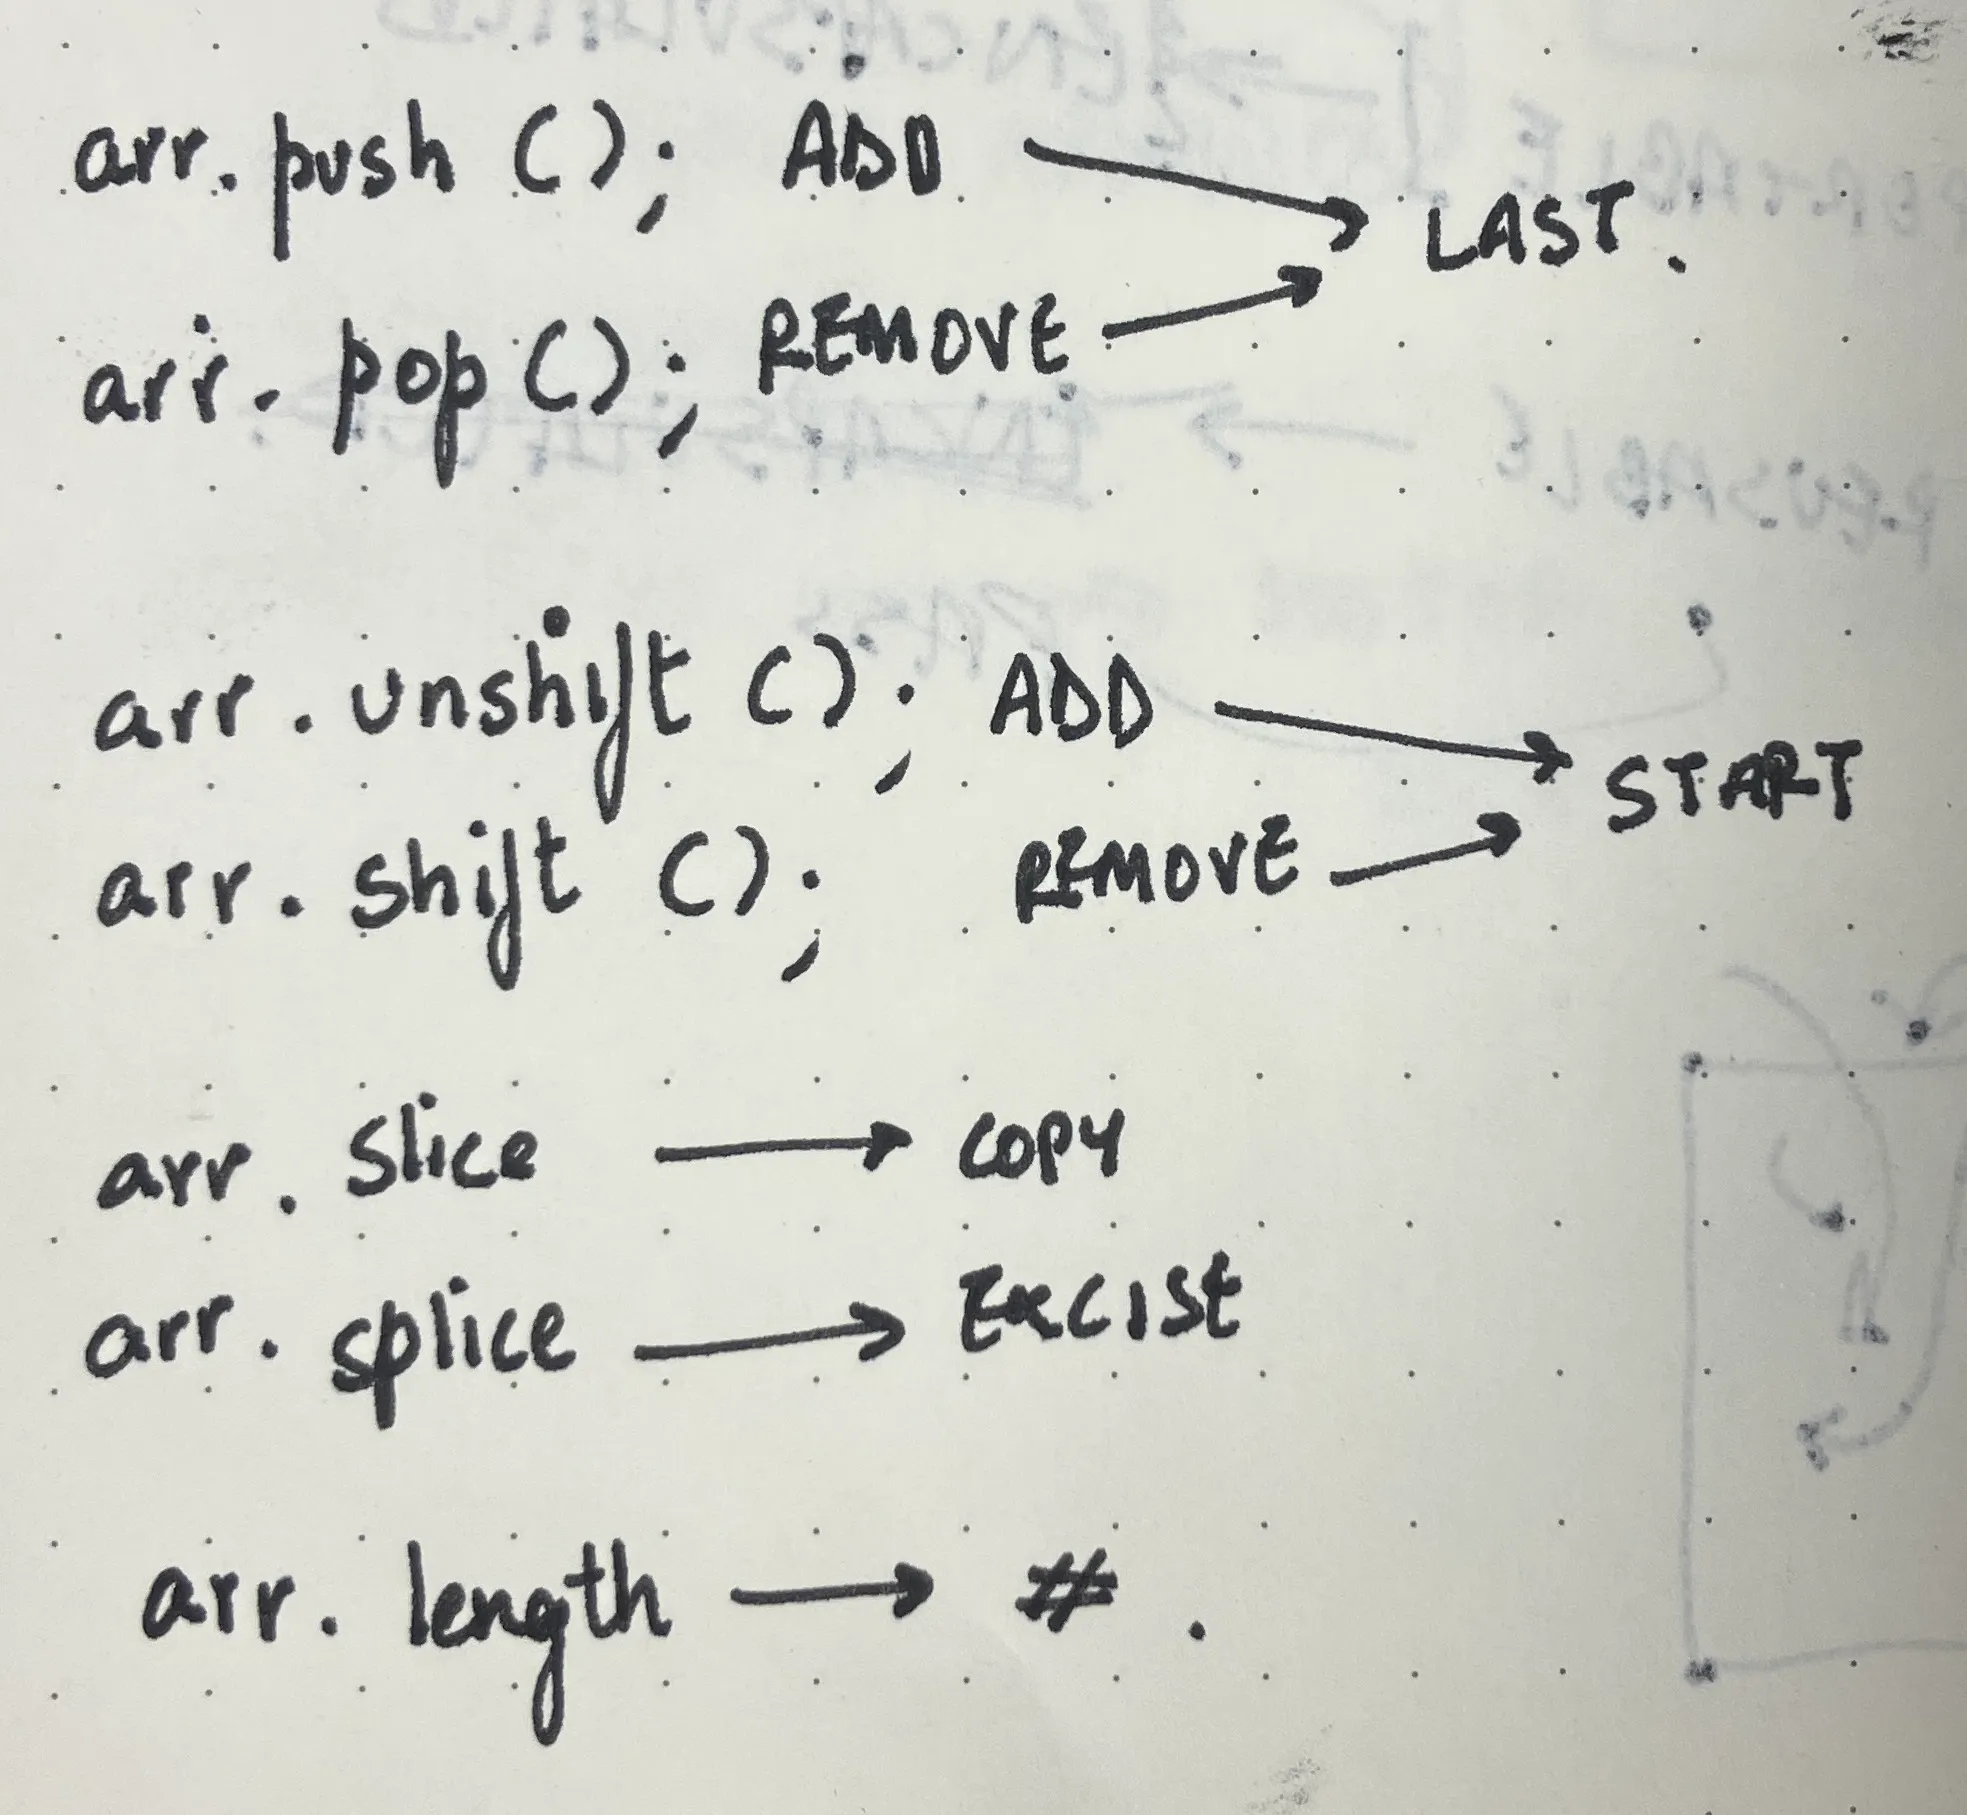 arr.push(); ADD → LAST.
arr.pop(); REMOVE →
arr.unshift(); ADD → START
arr.shift(); REMOVE →
arr.slice → COPY
arr.splice → EXCISt
arr.length → #.